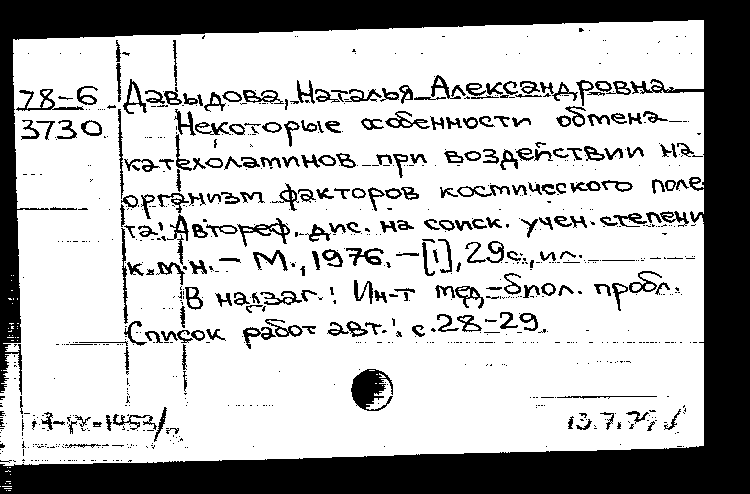 78-6 Давыдова, Наталья Александровна.
3730 Некоторые особенности обмена
катехоламинов при воздействии на
организм факторов космического поле
та: Автореф. дис. на соиск. учен. степени
к.м.н. — М., 1976. — [1], 29 с., ил.
В надзаг.: Ин-т мед.-биол. пробл.
Список работ авт.: с. 28-29.
13.7.79